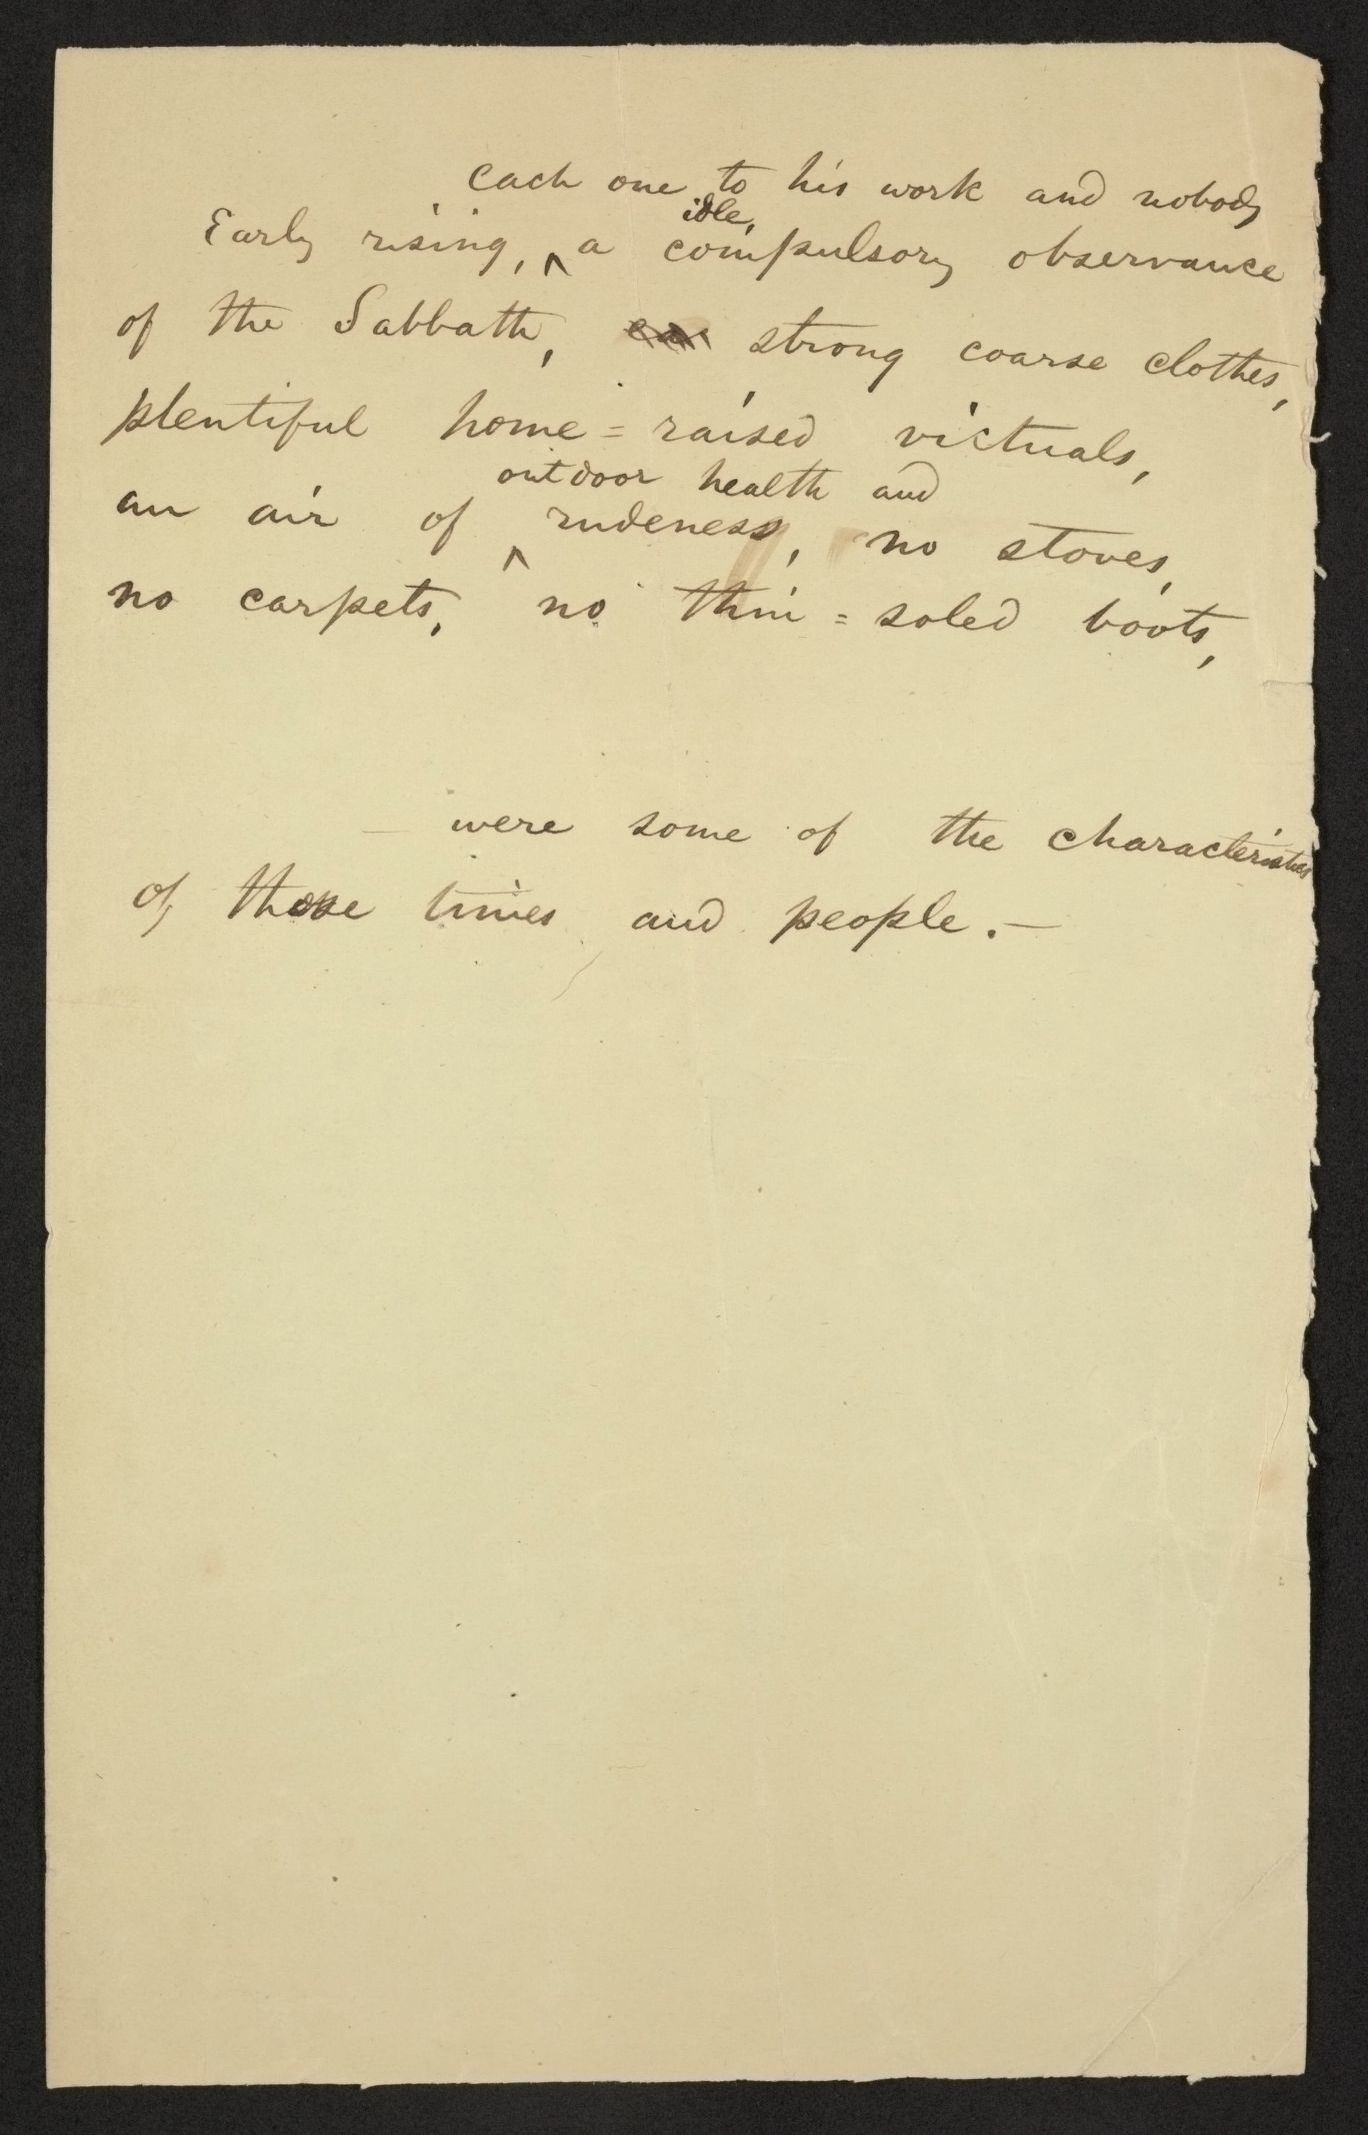 each one to his work and nobody
idle,
Early rising, ^ a compulsory observance
of the Sabbath, strong coarse clothes,
plentiful home=raised victuals,
outdoor health and
an air of ^ rudeness, no stoves,
no carpets, no thin=soled boots,
— were some of the characteristics
of those times and people.—